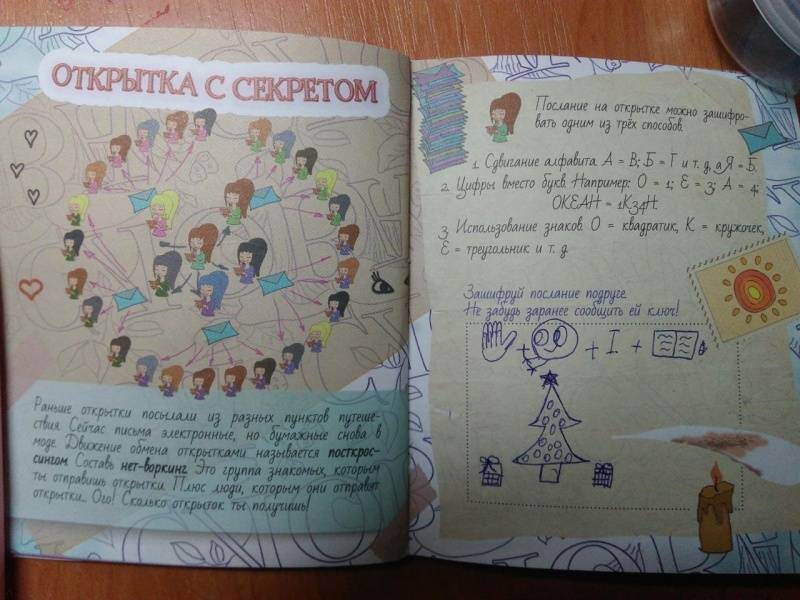 ОТКРЫТКА С СЕКРЕТОМ
Раньше открытки посылали из разных пунктов путеше-
ствия. Сейчас письма электронные, но бумажные снова в
моде. Движение обмена открытками называется посткрос-
сингом. Составь нет-воркинг. Это группа знакомых, которым
ты отправишь открытки. Плюс люди, которым они отправят
открытки... Ого! Сколько открыток ты получишь!
Послание на открытке можно зашифро-
вать одним из трёх способов.
1. Сдвигание алфавита. А = В; Б = Г и т. д, а Я = Б.
2. Цифры вместо букв. Например: О = 1; Е = 3; А = 4;
ОКЕАН = 1К34Н.
3. Использование знаков. О = квадратик, К = кружочек,
Е = треугольник и т. д.
Зашифруй послание подруге.
Не забудь заранее сообщить ей ключ!
+ + I +